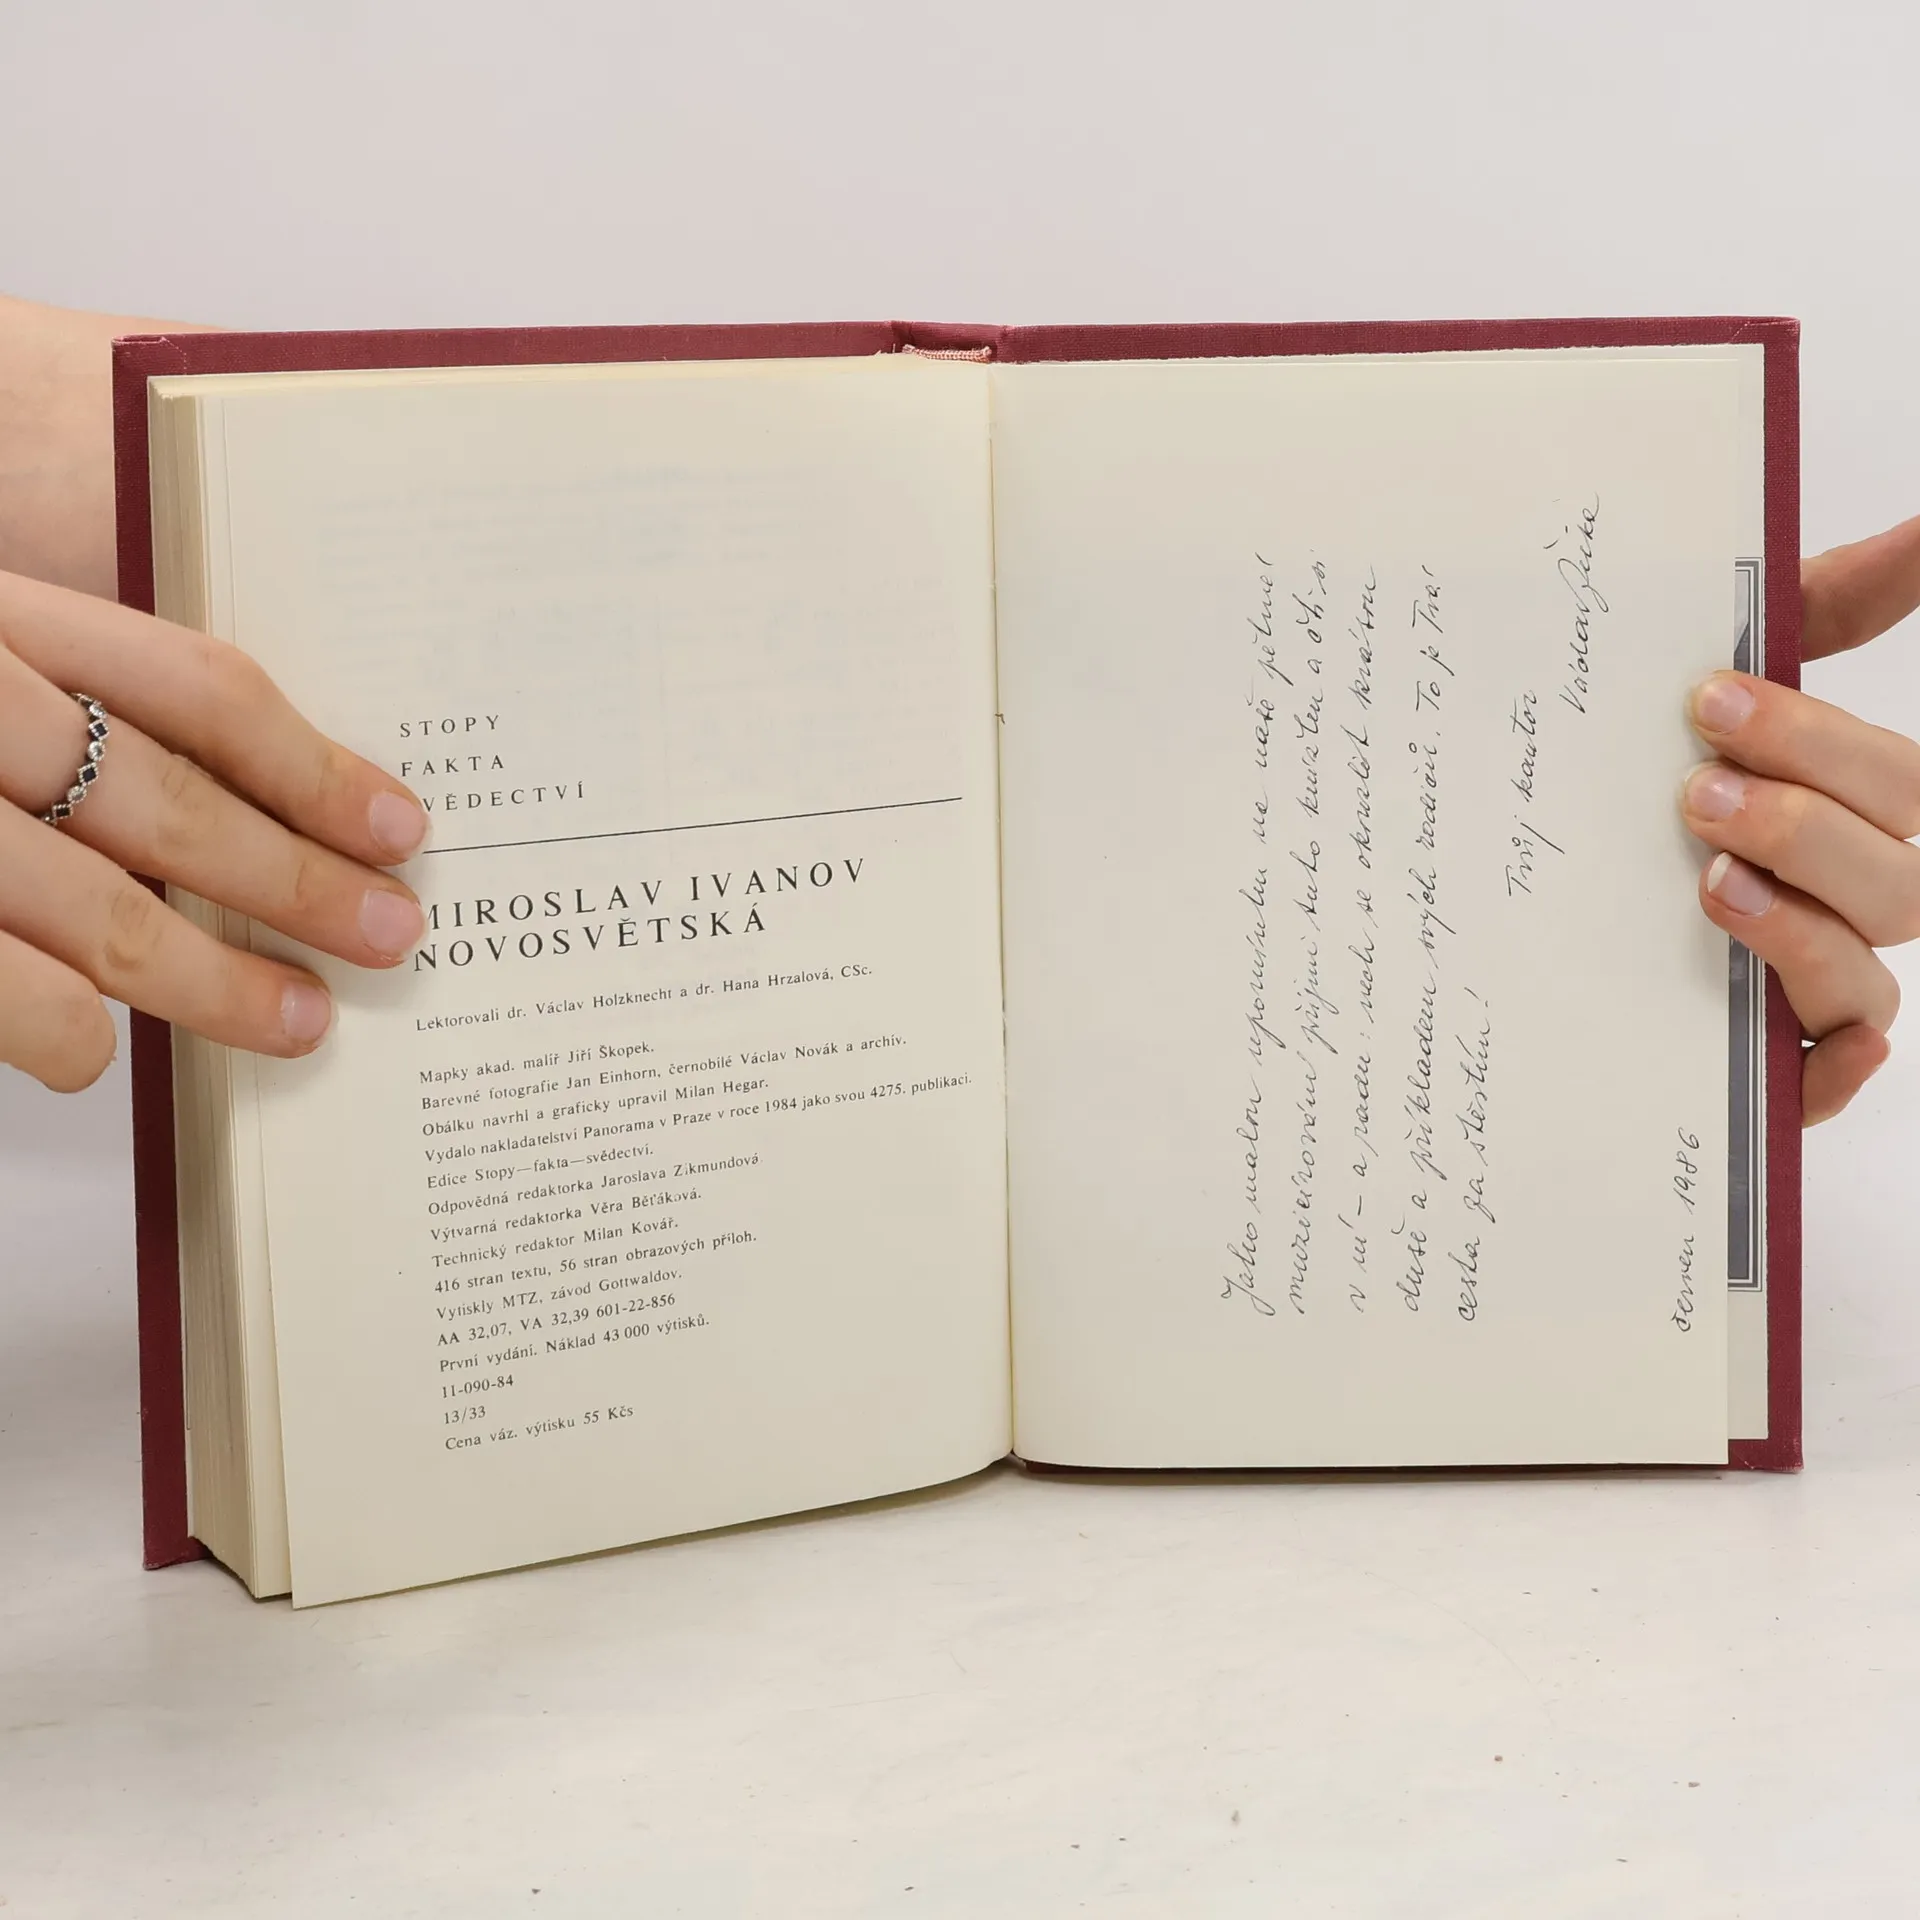 STOPY
FAKTA
VĚDECTVÍ
MIROSLAV IVANOV
NOVOSVĚTSKÁ
Lektorovali dr. Václav Holzknecht a dr. Hana Hrzalová, CSc.
Mapky akad. malíř Jiří Škopek.
Barevné fotografie Jan Einhorn, černobílé Václav Novák a archív.
Obálku navrhl a graficky upravil Milan Hegar.
Vydalo nakladatelství Panorama v Praze v roce 1984 jako svou 4275. publikaci.
Edice Stopy—fakta—svědectví.
Odpovědná redaktorka Jaroslava Zikmundová.
Výtvarná redaktorka Věra Běťáková.
Technický redaktor Milan Kovář.
416 stran textu, 56 stran obrazových příloh.
Vytiskly MTZ, závod Gottwaldov.
AA 32,07, VA 32,39 601-22-856
První vydání. Náklad 43 000 výtisků.
11-090-84
13/33
Cena váz. výtisku 55 Kčs
Jako malou upomínku na naše pěkné
muzicírování přijmi tuto knížku a čti si
v ní – a radu: nech se okouzlit krásou
duše a příkladem svých rodičů. To je Tvá
cesta za štěstím!
Tvůj kantor
Václav
červen 1986